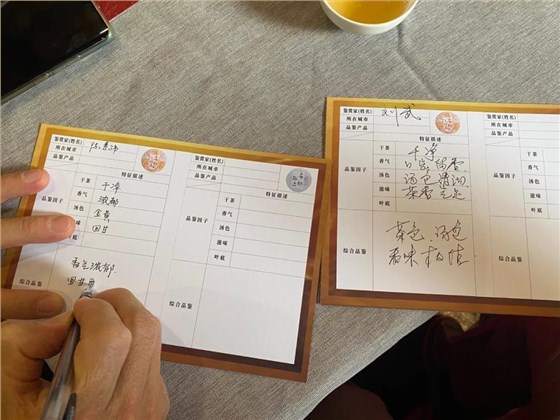 鉴赏家(姓名)
所在城市
品鉴产品
特征描述
品鉴因子
干茶 干净
香气 浓郁
汤色 金黄
滋味 回甘
叶底
综合品鉴
香气浓郁
回甘
鉴赏家(姓名)
所在城市
品鉴产品
特征描述
品鉴因子
干茶
香气
汤色
滋味
叶底
综合品鉴
鉴赏家(姓名) 刘武
所在城市
品鉴产品
特征描述
品鉴因子
干茶 干净
香气
汤色
滋味 茶香
叶底
综合品鉴
茶色、汤色
香味
鉴赏家(姓名)
所在城市
品鉴产品
品鉴因子
干茶
香气
汤色
滋味
叶底
综合品鉴